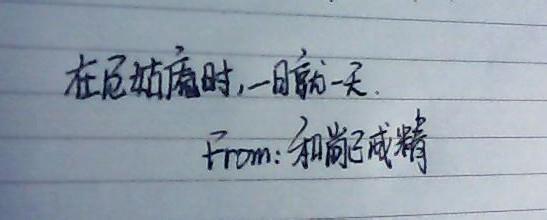 在尼姑庵时,一日就一天.
From:和尚已成精